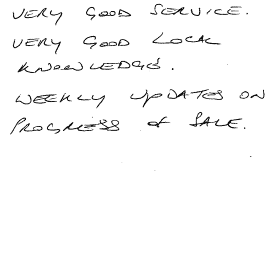 VERY GOOD SERVICE.
VERY GOOD LOCAL
KNOWLEDGE.
WEEKLY UPDATES ON
PROGRESS of SALE.